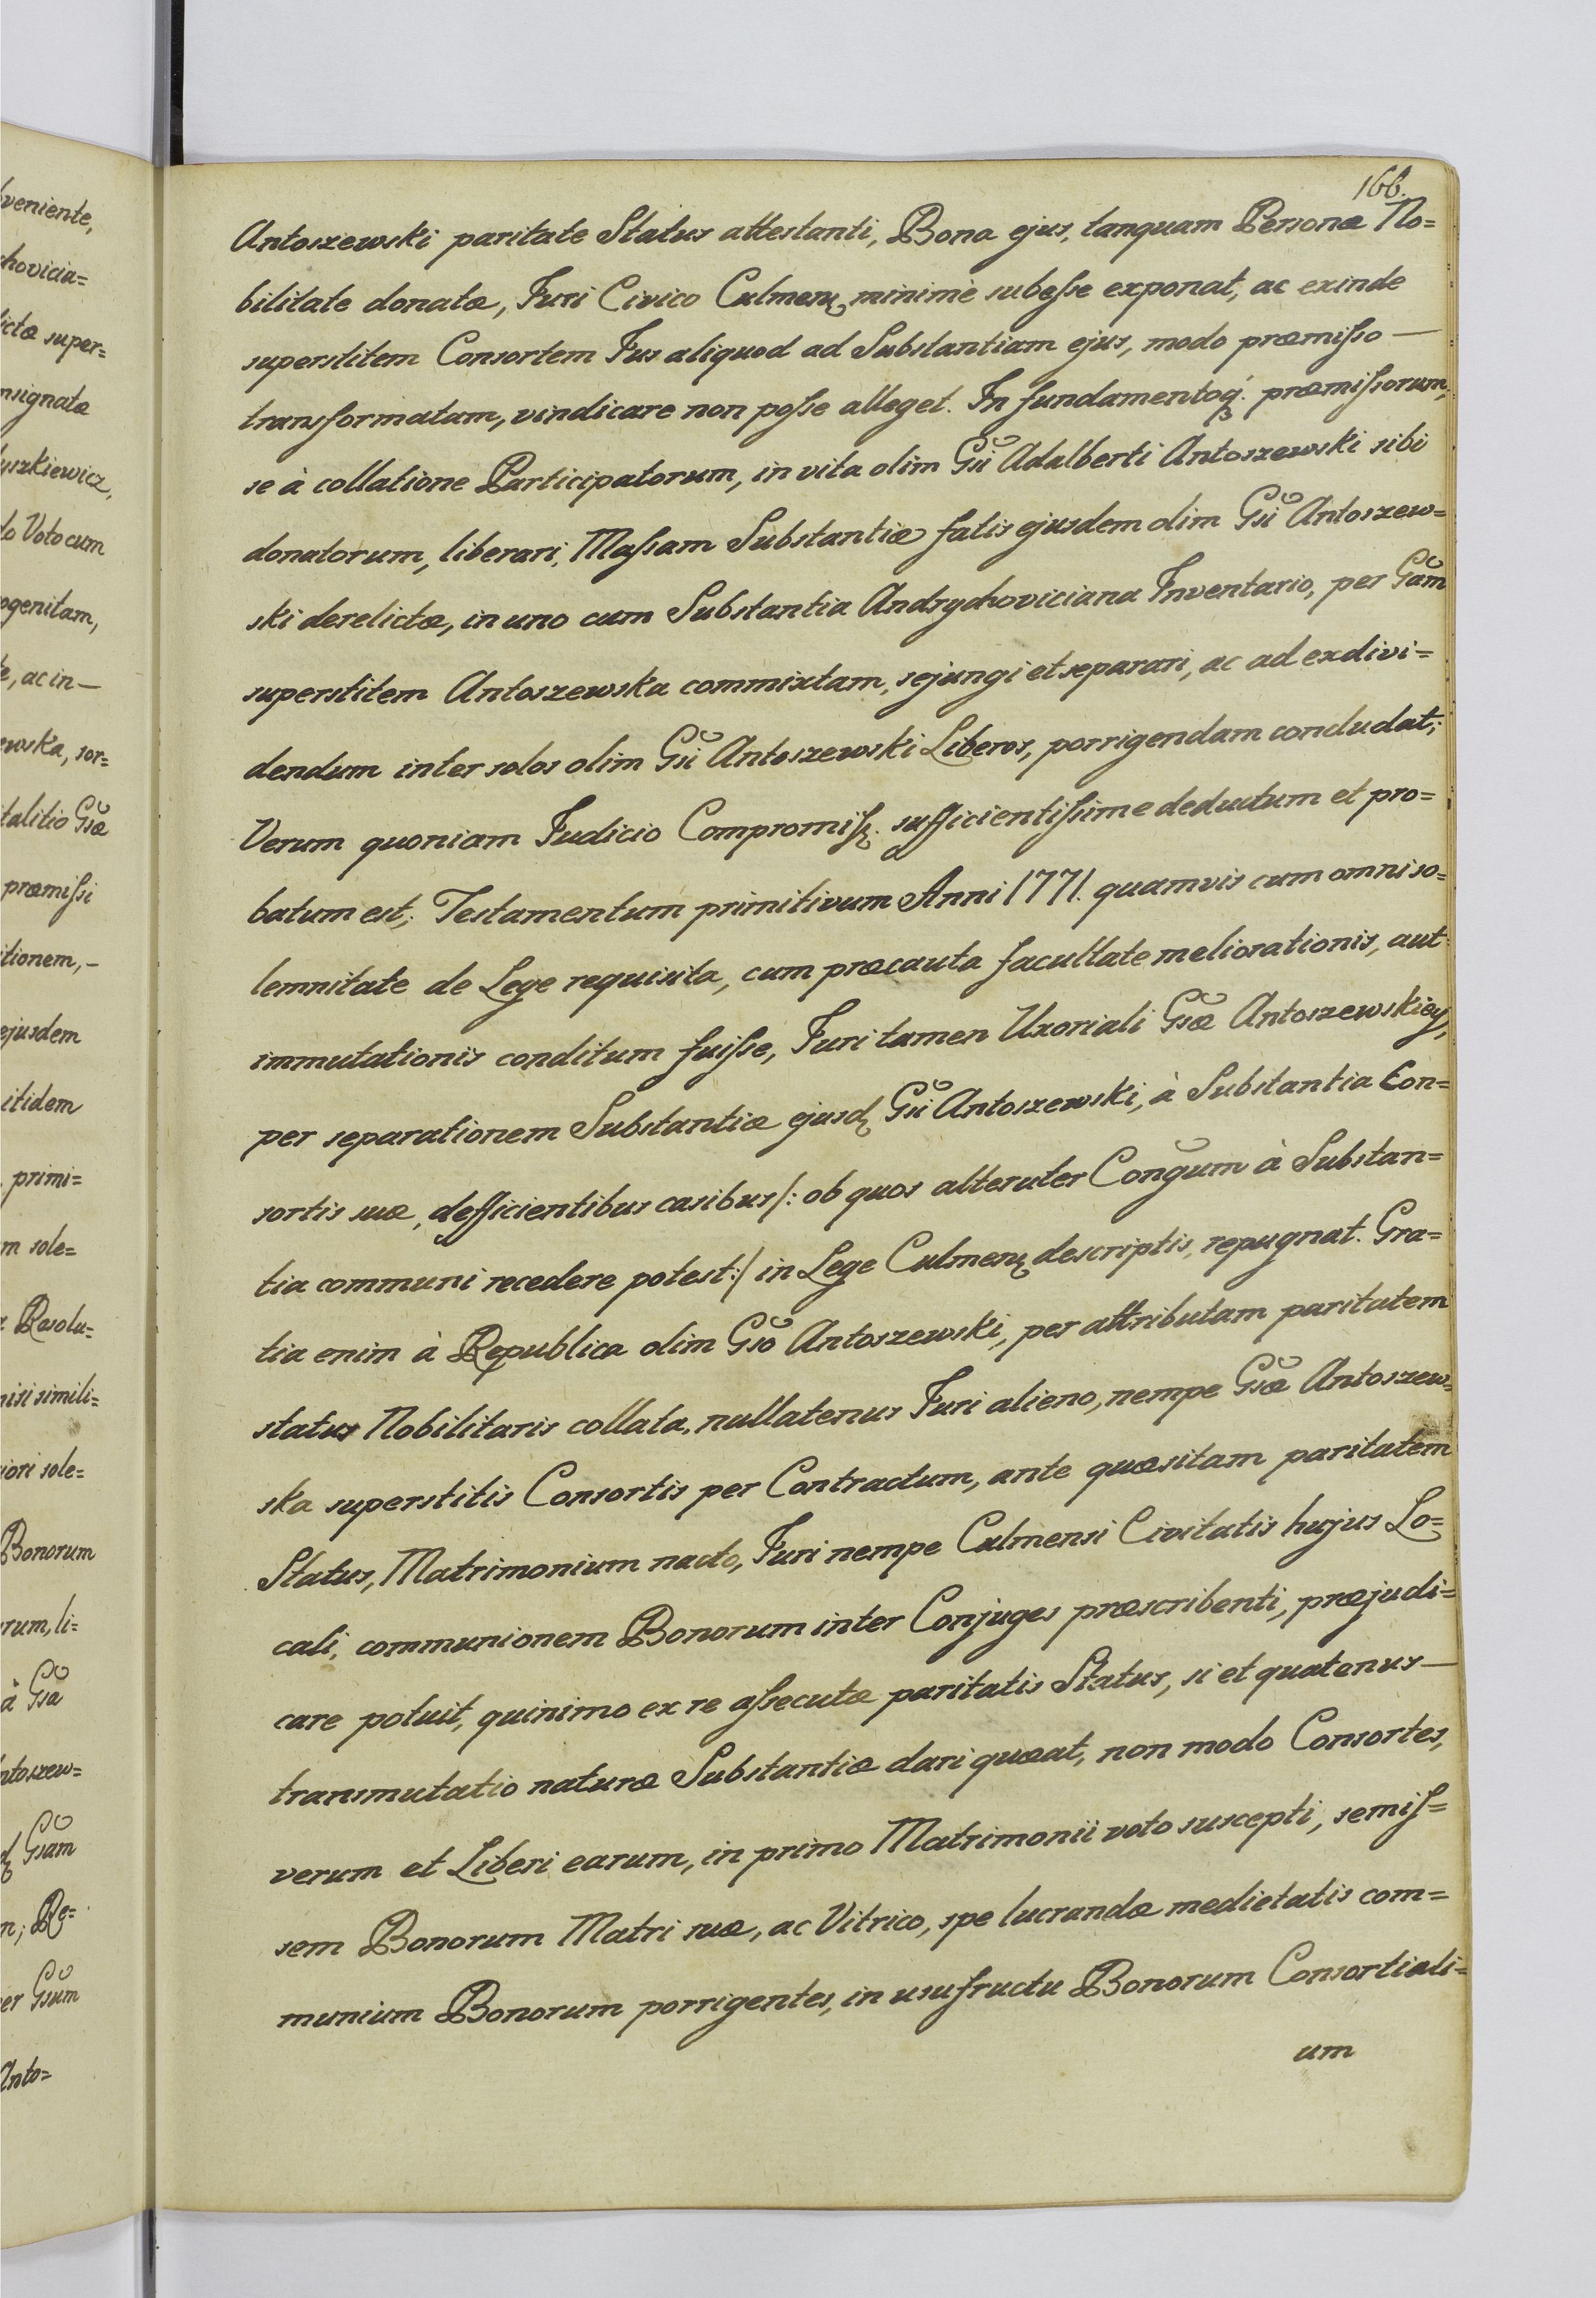 166.
Antoszewski paritate Status attestanti, Bona ejus, tanquam Personæ No=
bilitate donatæ, Juri Civico Culmenȝ minimè subeſse exponat, ac exinde
superstitem Consortem Jus aliquod ad Substantiam ejus, modo præmiſso —
transformatam, vindicare non poſse alleget. In fundamentoq́ȝ. præmiſsorum,
se à collatione Participatorum, in vita olim Gsi̅ Adalberti Antoszewski sibi
donatorum, liberari, Maſsam Substantiæ fatis ejusdem olim Gsi̅ Antoszew=
ski derelictæ, in uno cum Substantia Andrychoviciana Inventario, per Gsa̅m
superstitem Antoszewska commixtam, sejungi et separari, ac ad exdivi=
dendum inter solos olim Gsi̅ Antoszewski Liberos, porrigendam concludat;
Verum quoniam Judicio Compromiſsȝ. sufficientiſsime deductum et pro=
batum est; Testamentum primitivum Anni 1771. quamvis cum omni so=
lemnitate de Lege requisita, cum præcauta facultate meliorationis, aut
immutationis conditum fuiſse, Juri tamen Uxoriali Gsæ̅ Antoszewskiey,
per separationem Substantiæ ejusdȝ Gsi̅ Antoszewski, à Substantia Con=
sortis suæ, defficientibus casibus /: ob quos alteruter Conģum à Substan=
tia communi recedere potest :/ in Lege Culmenȝ descriptis, repugnat. Gra=
tia enim à Republica olim Gso̅ Antoszewski, per attributam paritatem
status Nobilitaris collata, nullatenus Juri alieno, nempe Gsæ̅ Antoszew=
ska superstitis Consortis per Contractum, ante quæsitam paritatem
Status, Matrimonium nacto, Juri nempe Culmensi Civitatis hujus Lo=
cali, communionem Bonorum inter Conjuges præscribenti, præjudi=
care potuit, quinimo ex re aſsecutæ paritatis Status, si et quatenus —
transmutatio naturæ Substantiæ dari quæat, non modo Consortes,
verum et Liberi earum, in primo Matrimonii voto suscepti, semiſ=
sem Bonorum Matri suæ, ac Vitrico, spe lucrandæ medietatis com=
munium Bonorum porrigentes, in usufructu Bonorum Consortiali=
um